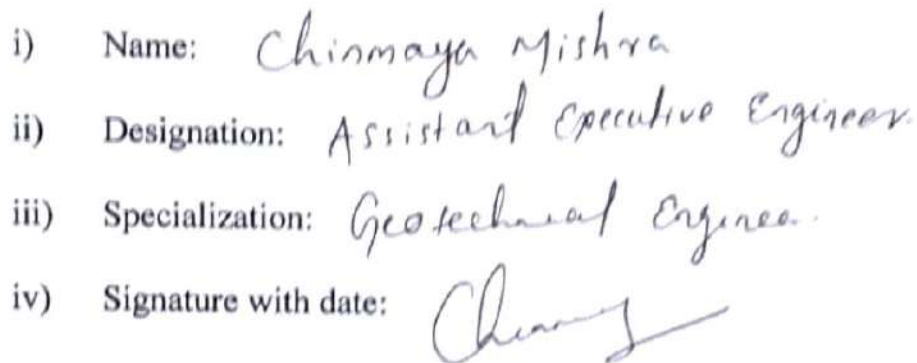 i) Name: Chinmaya Mishra
ii) Designation: Assistant Executive Engineer.
iii) Specialization: Geotechnical Engineer.
iv) Signature with date: